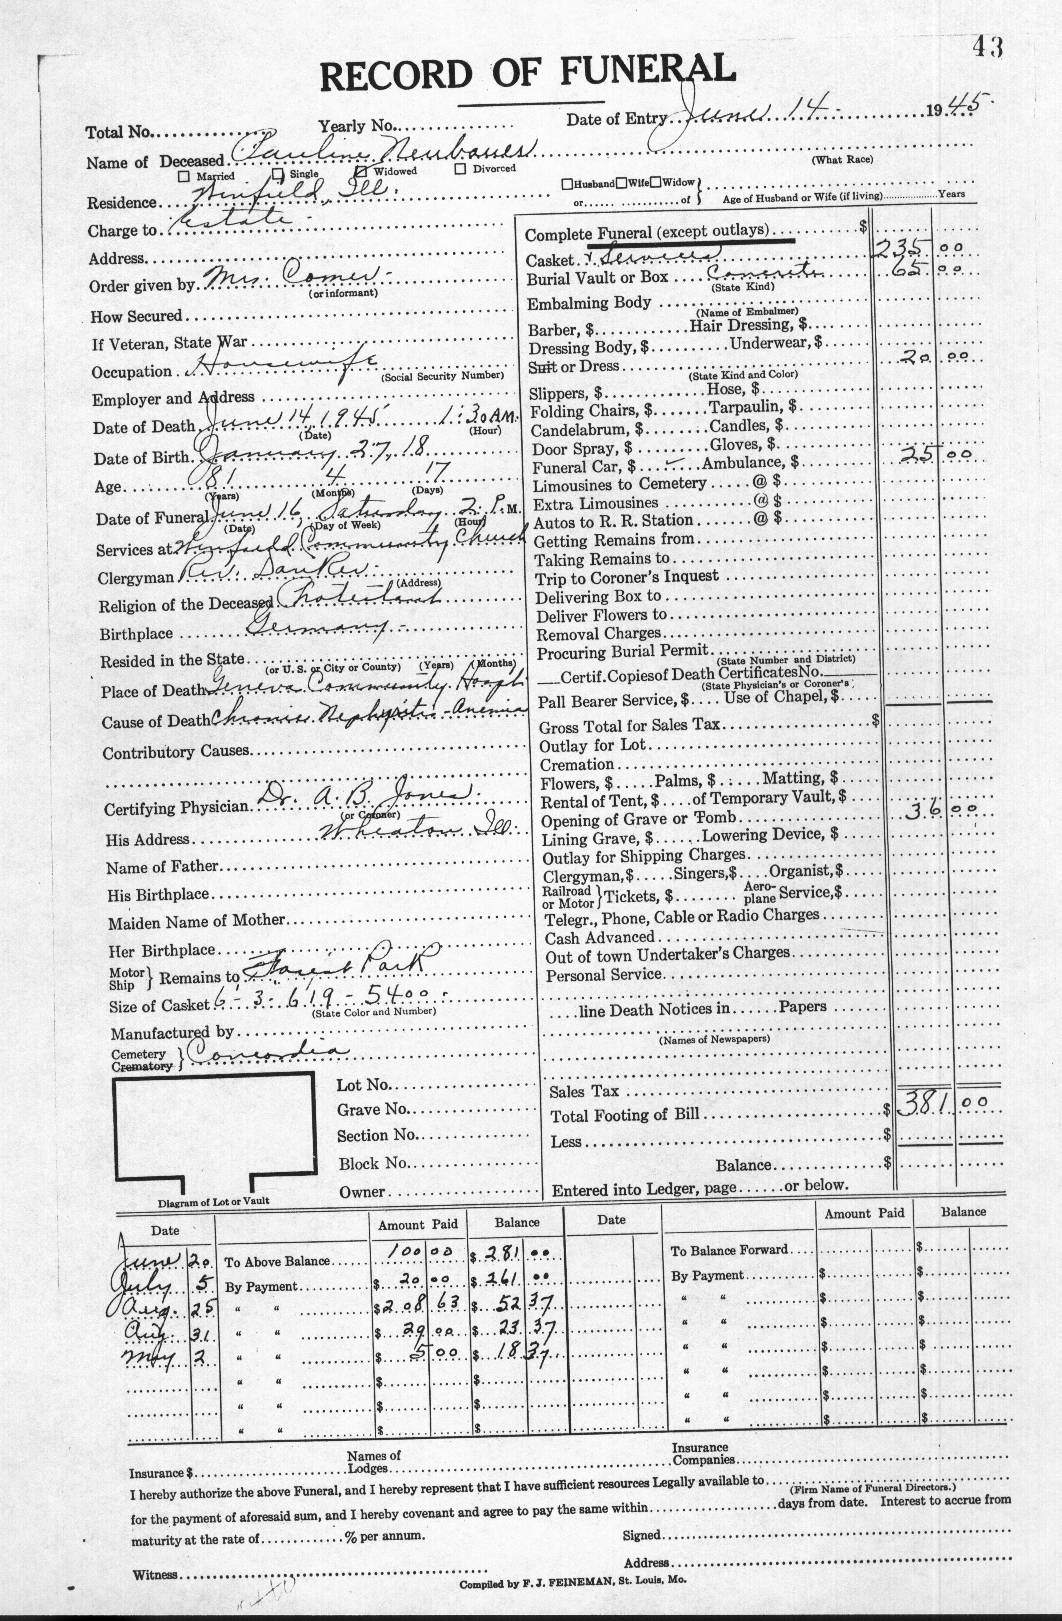 43
RECORD OF FUNERAL
Total No. Yearly No. Date of Entry June 14 - 1945.
Name of Deceased Pauline Neubauer (What Race)
☐ Married ☐ Single ☑ Widowed ☐ Divorced
Residence Winfield, Ill. ☐Husband☐Wife☐Widow} or of Age of Husband or Wife (if living) Years
Charge to Estate -
Address
Order given by Mrs. Comer -
(or informant)
How Secured
If Veteran, State War
Occupation Housewife (Social Security Number)
Employer and Address
Date of Death June 14, 1945 1:30 A.M.
(Date) (Hour)
Date of Birth January 27, 18
Age 81 4 17
(Years) (Months) (Days)
Date of Funeral June 16, Saturday 2 P.M.
(Date) (Day of Week) (Hour)
Services at Winfield Community Church
Clergyman Rev. -
(Address)
Religion of the Deceased Protestant
Birthplace Germany -
Resided in the State
(or U. S. or City or County) (Years) (Months)
Place of Death Geneva Community Hospt
Cause of Death Chronic Nephritis - Anemia
Contributory Causes
Certifying Physician Dr. A. B. Jones.
(or Coroner)
His Address Wheaton Ill.
Name of Father
His Birthplace
Maiden Name of Mother
Her Birthplace
Motor Ship } Remains to Forest Park
Size of Casket 6 - 3 - 619 - 5400 -
(State Color and Number)
Manufactured by
Cemetery Crematory } Concordia
Lot No.
Grave No.
Section No.
Block No.
Owner
Diagram of Lot or Vault
Complete Funeral (except outlays) $
Casket & Services 235 00
Burial Vault or Box Concrete 65 00
(State Kind)
Embalming Body
(Name of Embalmer)
Barber, $ Hair Dressing, $
Dressing Body, $ Underwear, $
Suit or Dress 20 00
(State Kind and Color)
Slippers, $ Hose, $
Folding Chairs, $ Tarpaulin, $
Candelabrum, $ Candles, $
Door Spray, $ Gloves, $
Funeral Car, $ ✓ Ambulance, $ 25 00
Limousines to Cemetery @ $
Extra Limousines @ $
Autos to R. R. Station @ $
Getting Remains from
Taking Remains to
Trip to Coroner's Inquest
Delivering Box to
Deliver Flowers to
Removal Charges
Procuring Burial Permit
(State Number and District)
Certif. Copies of Death Certificates No.
(State Physician's or Coroner's)
Pall Bearer Service, $ Use of Chapel, $
Gross Total for Sales Tax $
Outlay for Lot
Cremation
Flowers, $ Palms, $ Matting, $
Rental of Tent, $ of Temporary Vault, $
Opening of Grave or Tomb 36 00
Lining Grave, $ Lowering Device, $
Outlay for Shipping Charges
Clergyman, $ Singers, $ Organist, $
Railroad or Motor } Tickets, $ Aeroplane Service, $
Telegr., Phone, Cable or Radio Charges
Cash Advanced
Out of town Undertaker's Charges
Personal Service
line Death Notices in Papers
(Names of Newspapers)
Sales Tax
Total Footing of Bill $ 381 00
Less $
Balance $
Entered into Ledger, page or below.
Date Amount Paid Balance Date Amount Paid Balance
June 20 To Above Balance 100 00 $ 281 00 To Balance Forward $
July 5 By Payment $ 20 00 $ 261 00 By Payment $ $
Aug. 25 " " $ 208 63 $ 52 37 " " $ $
Aug. 31 " " $ 29 00 $ 23 37 " " $ $
May 2 " " $ 5 00 $ 18 37 " " $ $
" " $ $ " " $ $
" " $ $ " " $ $
" " $ $ " " $ $
Insurance $ Names of Lodges Insurance Companies
I hereby authorize the above Funeral, and I hereby represent that I have sufficient resources Legally available to
(Firm Name of Funeral Directors.)
for the payment of aforesaid sum, and I hereby covenant and agree to pay the same within days from date. Interest to accrue from
maturity at the rate of % per annum. Signed
Witness Address
Compiled by F. J. FEINEMAN, St. Louis, Mo.